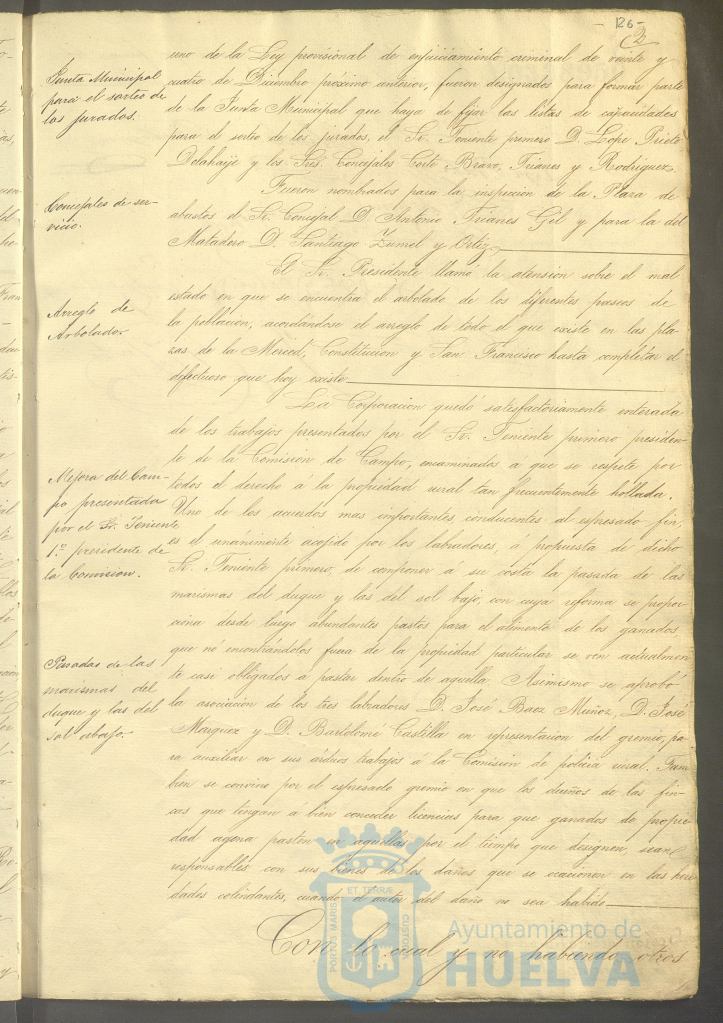 126-
2
uno de la Ley provisional de enjuiciamiento criminal de veinte y
Junta Municipal
para el sorteo de
los jurados.
cuatro de Diciembre próximo anterior, fueron designados para formar parte
de la Junta Municipal que haya de fijar las listas de capacidades
para el sorteo de los jurados, el Sr. Teniente primero D. Lope Prieto
Delahaije y los Sres. Concejales Coste Bravo, Trianes y Rodriguez.
Concejales de ser-
vicio.
Fueron nombrados para la inspeccion de la Plaza de
abastos el Sr. Concejal D. Antonio Trianes Gil y para la del
Matadero D. Santiago Zumel y Ortiz
Arreglo de
Arbolado.
El Sr. Presidente llamó la atension sobre el mal
estado en que se encuentra el arbolado de los diferentes paseos de
la poblacion, acordándose el arreglo de todo el que existe en las pla-
zas de la Merced, Constitucion y San Francisco hasta completar el
defectuoso que hoy existe
Mejora del Cam-
po presentada
por el Sr. Teniente
1.º presidente de
la Comision.
La Corporacion quedó satisfactoriamente enterada
de los trabajos presentados por el Sr. Teniente primero presiden-
te de la Comision de Campo, encaminados a que se respete por
todos el derecho á la propiedad rural tan frecuentemente hollada.
Uno de los acuerdos mas importantes, conducentes al espresado fin,
es el unánimente acojido por los labradores, á propuesta de dicho
Sr. Teniente primero, de componer á su costa la pasada de las
marismas del duque y las del sol bajo, con cuya reforma se propor-
ciona desde luego abundantes pastos para el alimento de los ganados
que no encontrándolos fuera de la propiedad particular se ven actualmen-
Pasadas de las
marismas del
duque y las del
sol abajo.
te casi obligados á pastar dentro de aquella. Asimismo se aprobó
la asociacion de los tres labradores D. José Baez Muñoz, D. José
Marquez y D. Bartolomé Castilla en representacion del gremio, pa-
ra auxiliar en sus árduos trabajos á la Comision de policia rural. Tam-
bien se convino por el espresado gremio en que los dueños de las fin-
cas que tengan á bien conceder licencias para que ganados de propie-
dad agena pasten en aquellas por el tiempo que designen, sean
responsables con sus bienes de los daños que se ocasionen en las here-
dades colindantes, cuando el autor del daño no sea habido
Con lo cual y no habiendo otros
PORTUS MARIS ET TERRÆ CUSTODIA
Ayuntamiento de
HUELVA